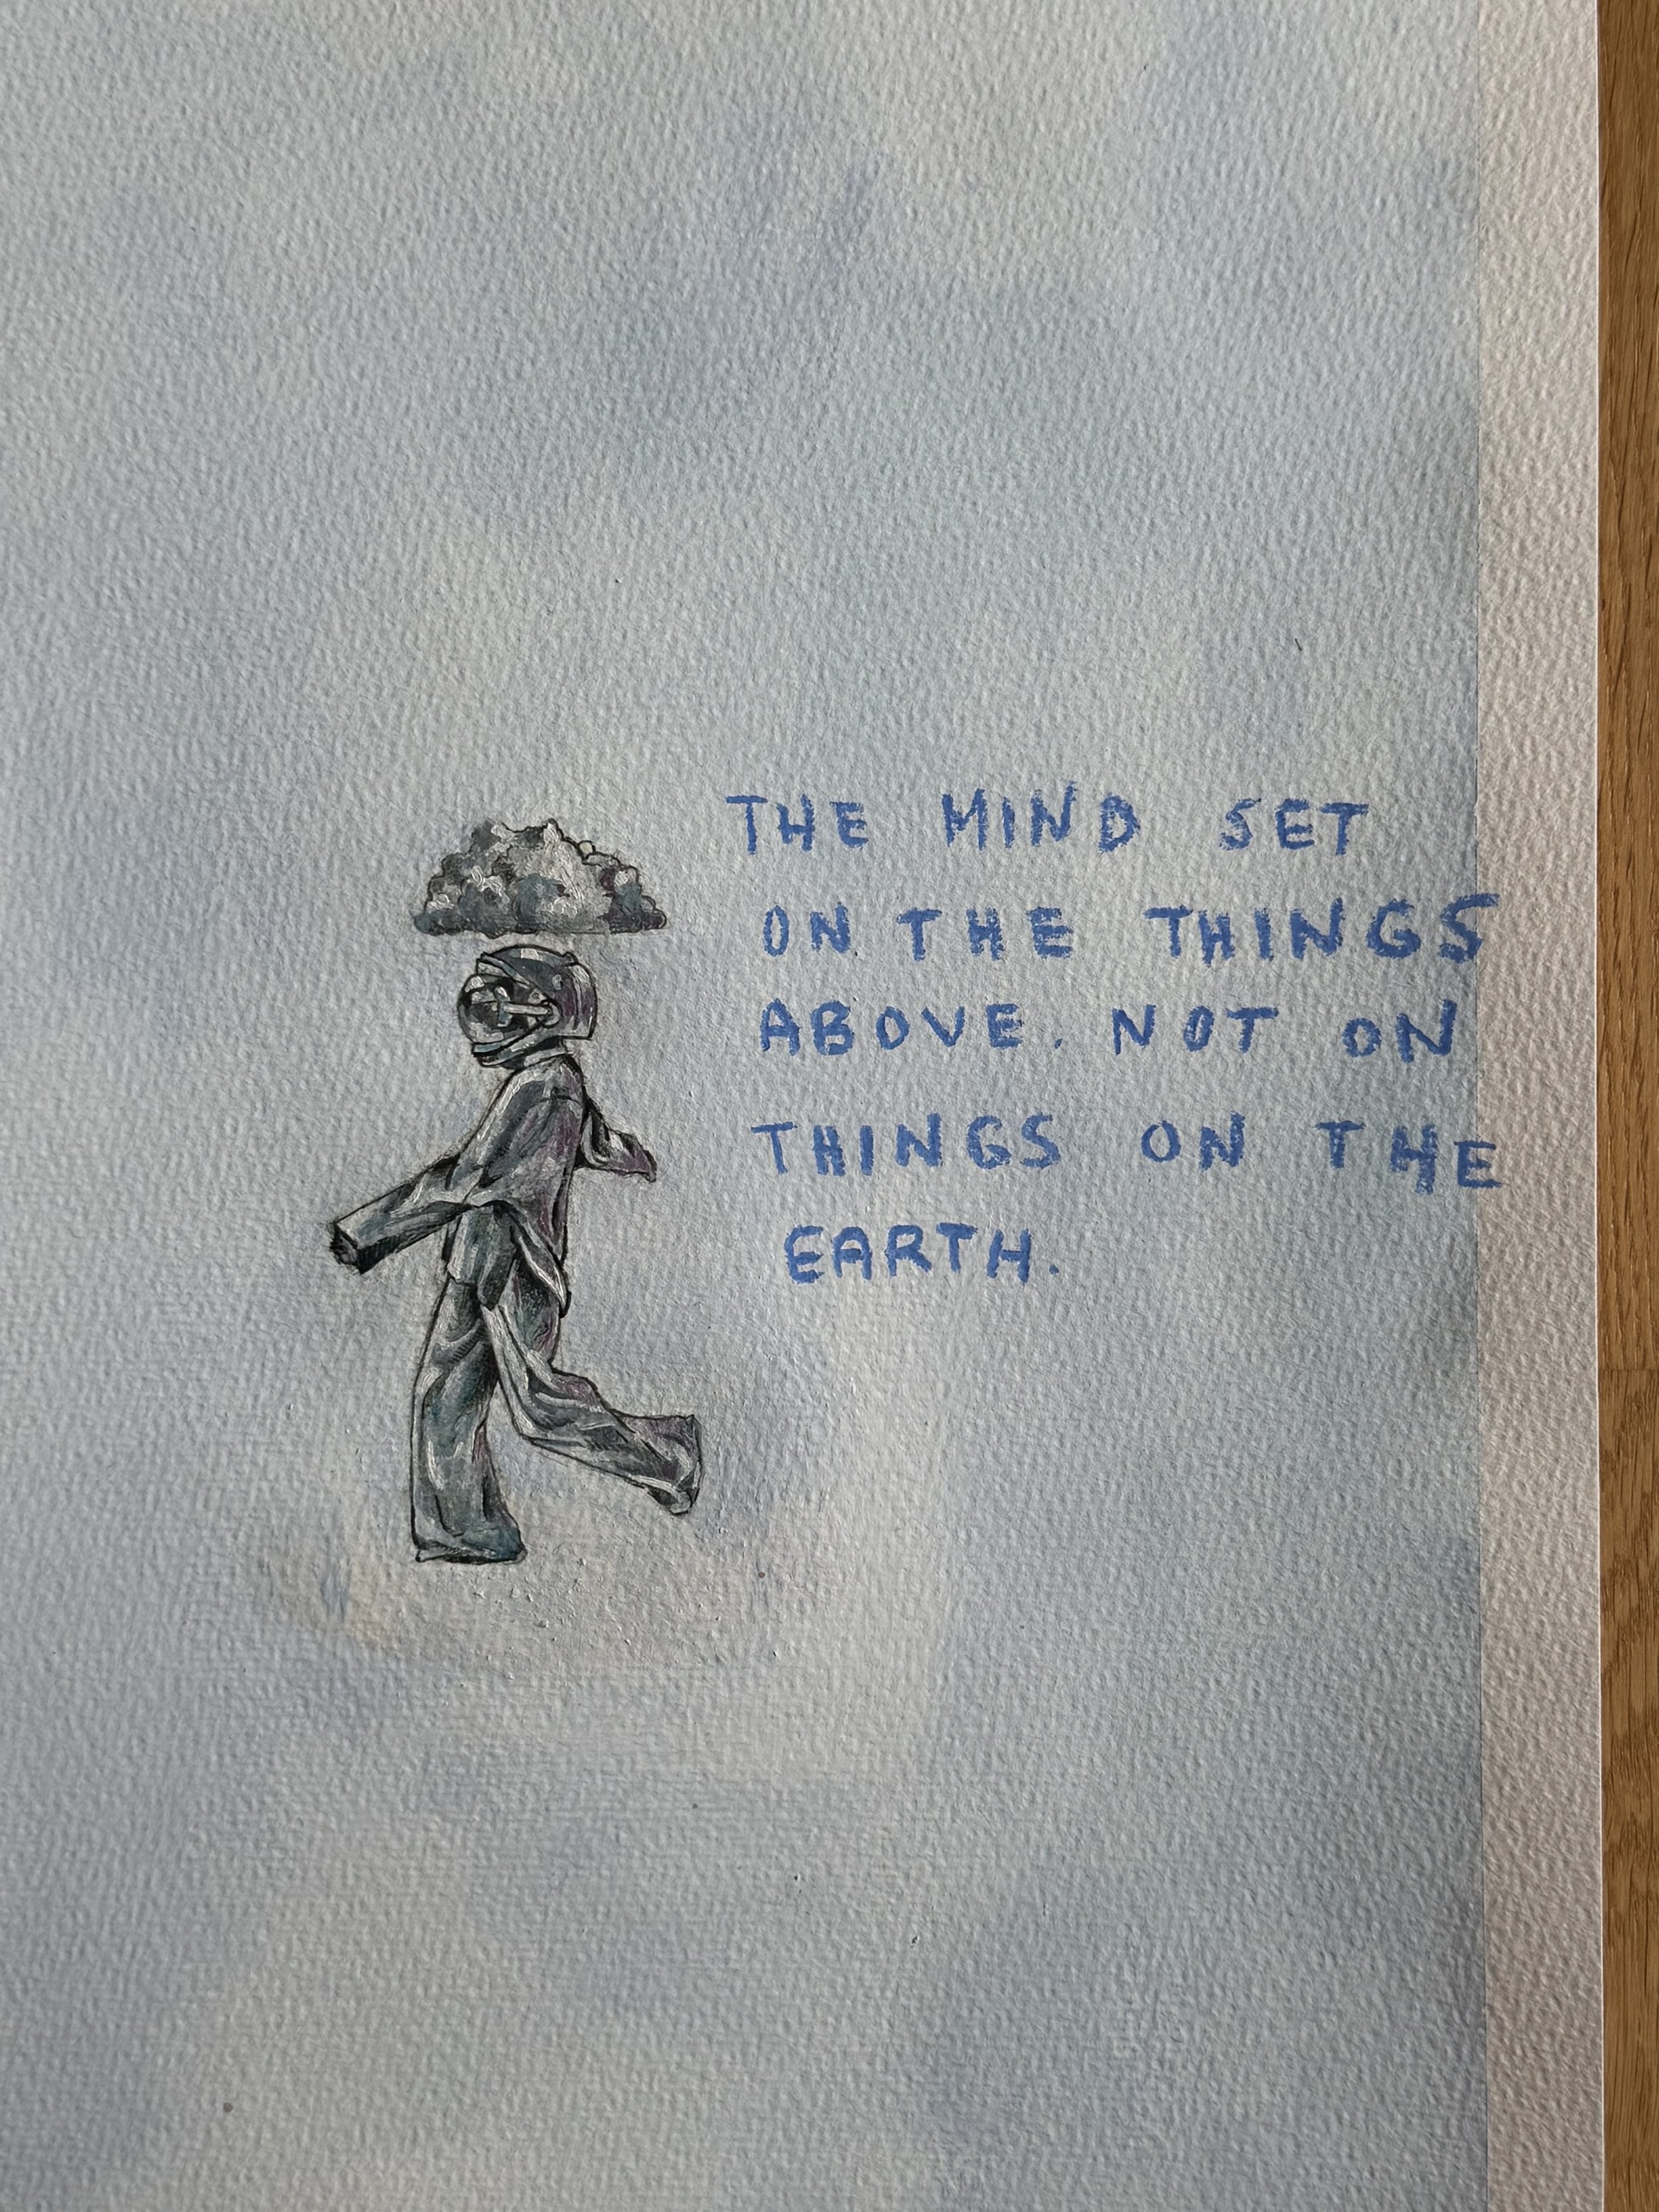 THE MIND SET
ON THE THINGS
ABOVE. NOT ON
THINGS ON THE
EARTH.